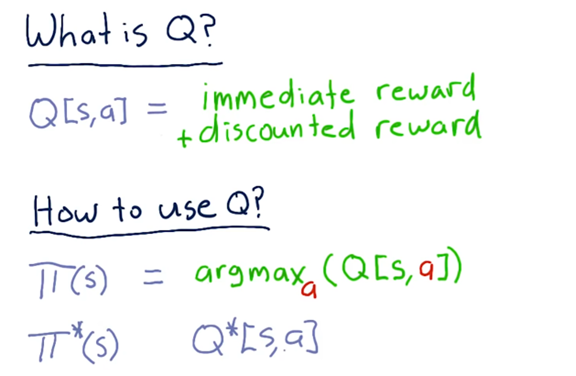 What is Q?
Q[s,a] = immediate reward
+ discounted reward
How to use Q?
π(s) = argmaxₐ(Q[s,a])
π*(s) Q*[s,a]